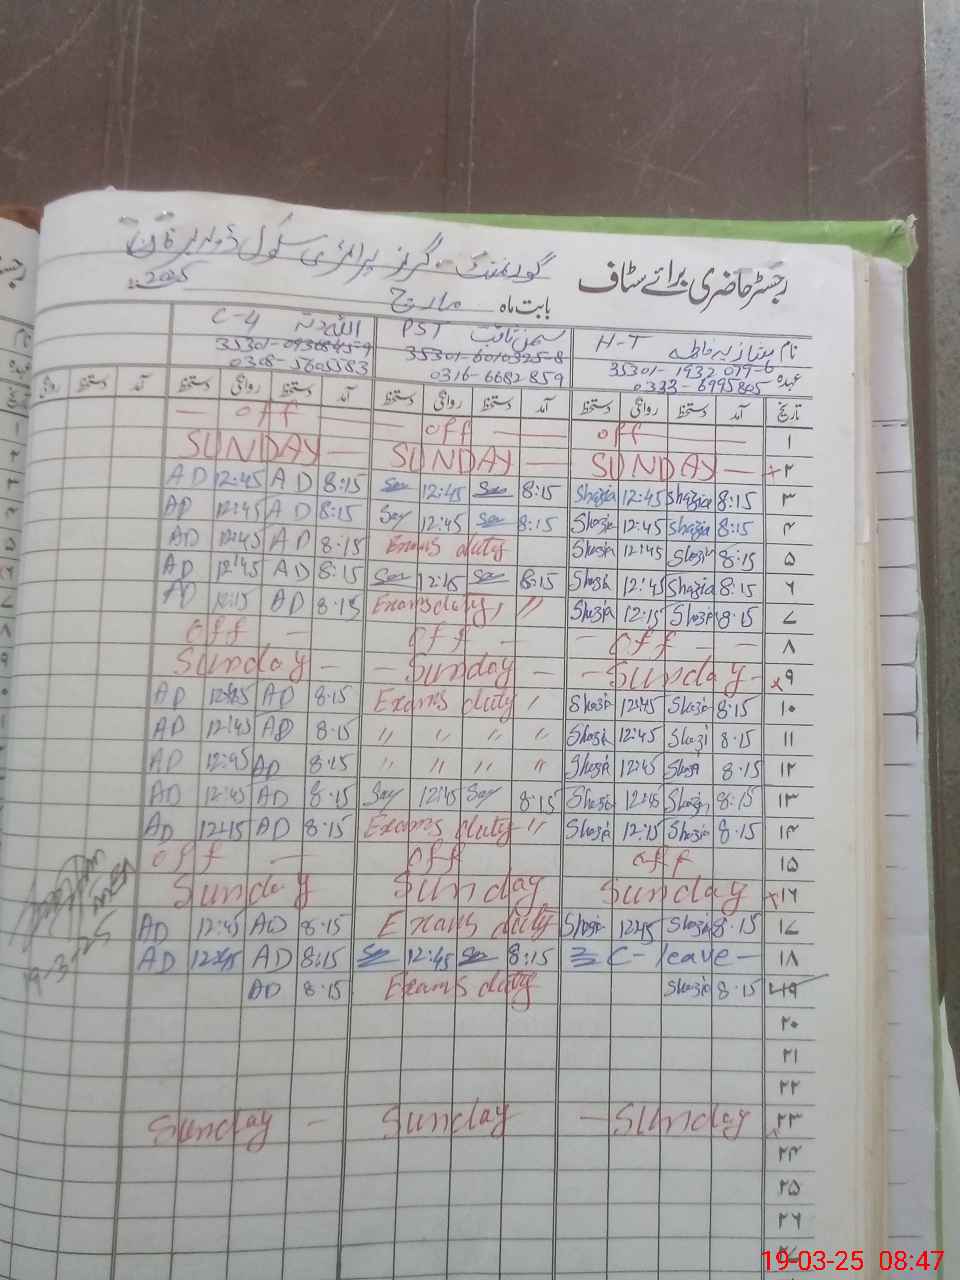 گورنمنٹ گرلز پرائمری سکول
رجسٹر حاضری برائے سٹاف
بابت ماہ مارچ 2025
نام H-T
PST
C-4 اللہ دتہ
عہدہ 35301-1932079-6
35301-6010325-8
35301-0930845-9
0333-6995805
0316-6682859
0308-5605583
تاریخ آمد دستخط روانگی دستخط آمد دستخط روانگی دستخط آمد دستخط روانگی دستخط آمد دستخط روانگی
۱ off off off
۲ SUNDAY SUNDAY SUNDAY
۳ 8:15 Shazia 12:45 Shazia 8:15 12:45 8:15 AD 12:45 AD
۴ 8:15 Shazia 12:45 Shazia 8:15 12:45 8:15 AD 12:45 AD
۵ 8:15 Shazia 12:45 Shazia Exams duty 8:15 AD 12:45 AD
۶ 8:15 Shazia 12:45 Shazia 8:15 12:45 8:15 AD 12:45 AD
۷ 8:15 Shazia 12:15 Shazia Exams duty " 8:15 AD 12:15 AD
۸ off off off
۹ Sunday Sunday Sunday
۱۰ 8:15 Shazia 12:45 Shazia Exams duty " 8:15 AD 12:45 AD
۱۱ 8:15 Shazia 12:45 Shazia " " " " 8:15 AD 12:45 AD
۱۲ 8:15 Shazia 12:45 Shazia " " " " 8:15 AD 12:45 AD
۱۳ 8:15 Shazia 12:45 Shazia 8:15 12:45 8:15 AD 12:45 AD
۱۴ 8:15 Shazia 12:15 Shazia Exams duty " 8:15 AD 12:15 AD
۱۵ off off off
۱۶ Sunday Sunday Sunday
۱۷ 8:15 Shazia 12:45 Shazia Exams duty 8:15 AD 12:45 AD
۱۸ C-leave 8:15 12:45 8:15 AD 12:45 AD
۱۹ 8:15 Shazia Exams duty 8:15 AD
19-3-25
۲۰
۲۱
۲۲
۲۳ Sunday Sunday Sunday
۲۴
۲۵
۲۶
۲۷
19-03-25 08:47